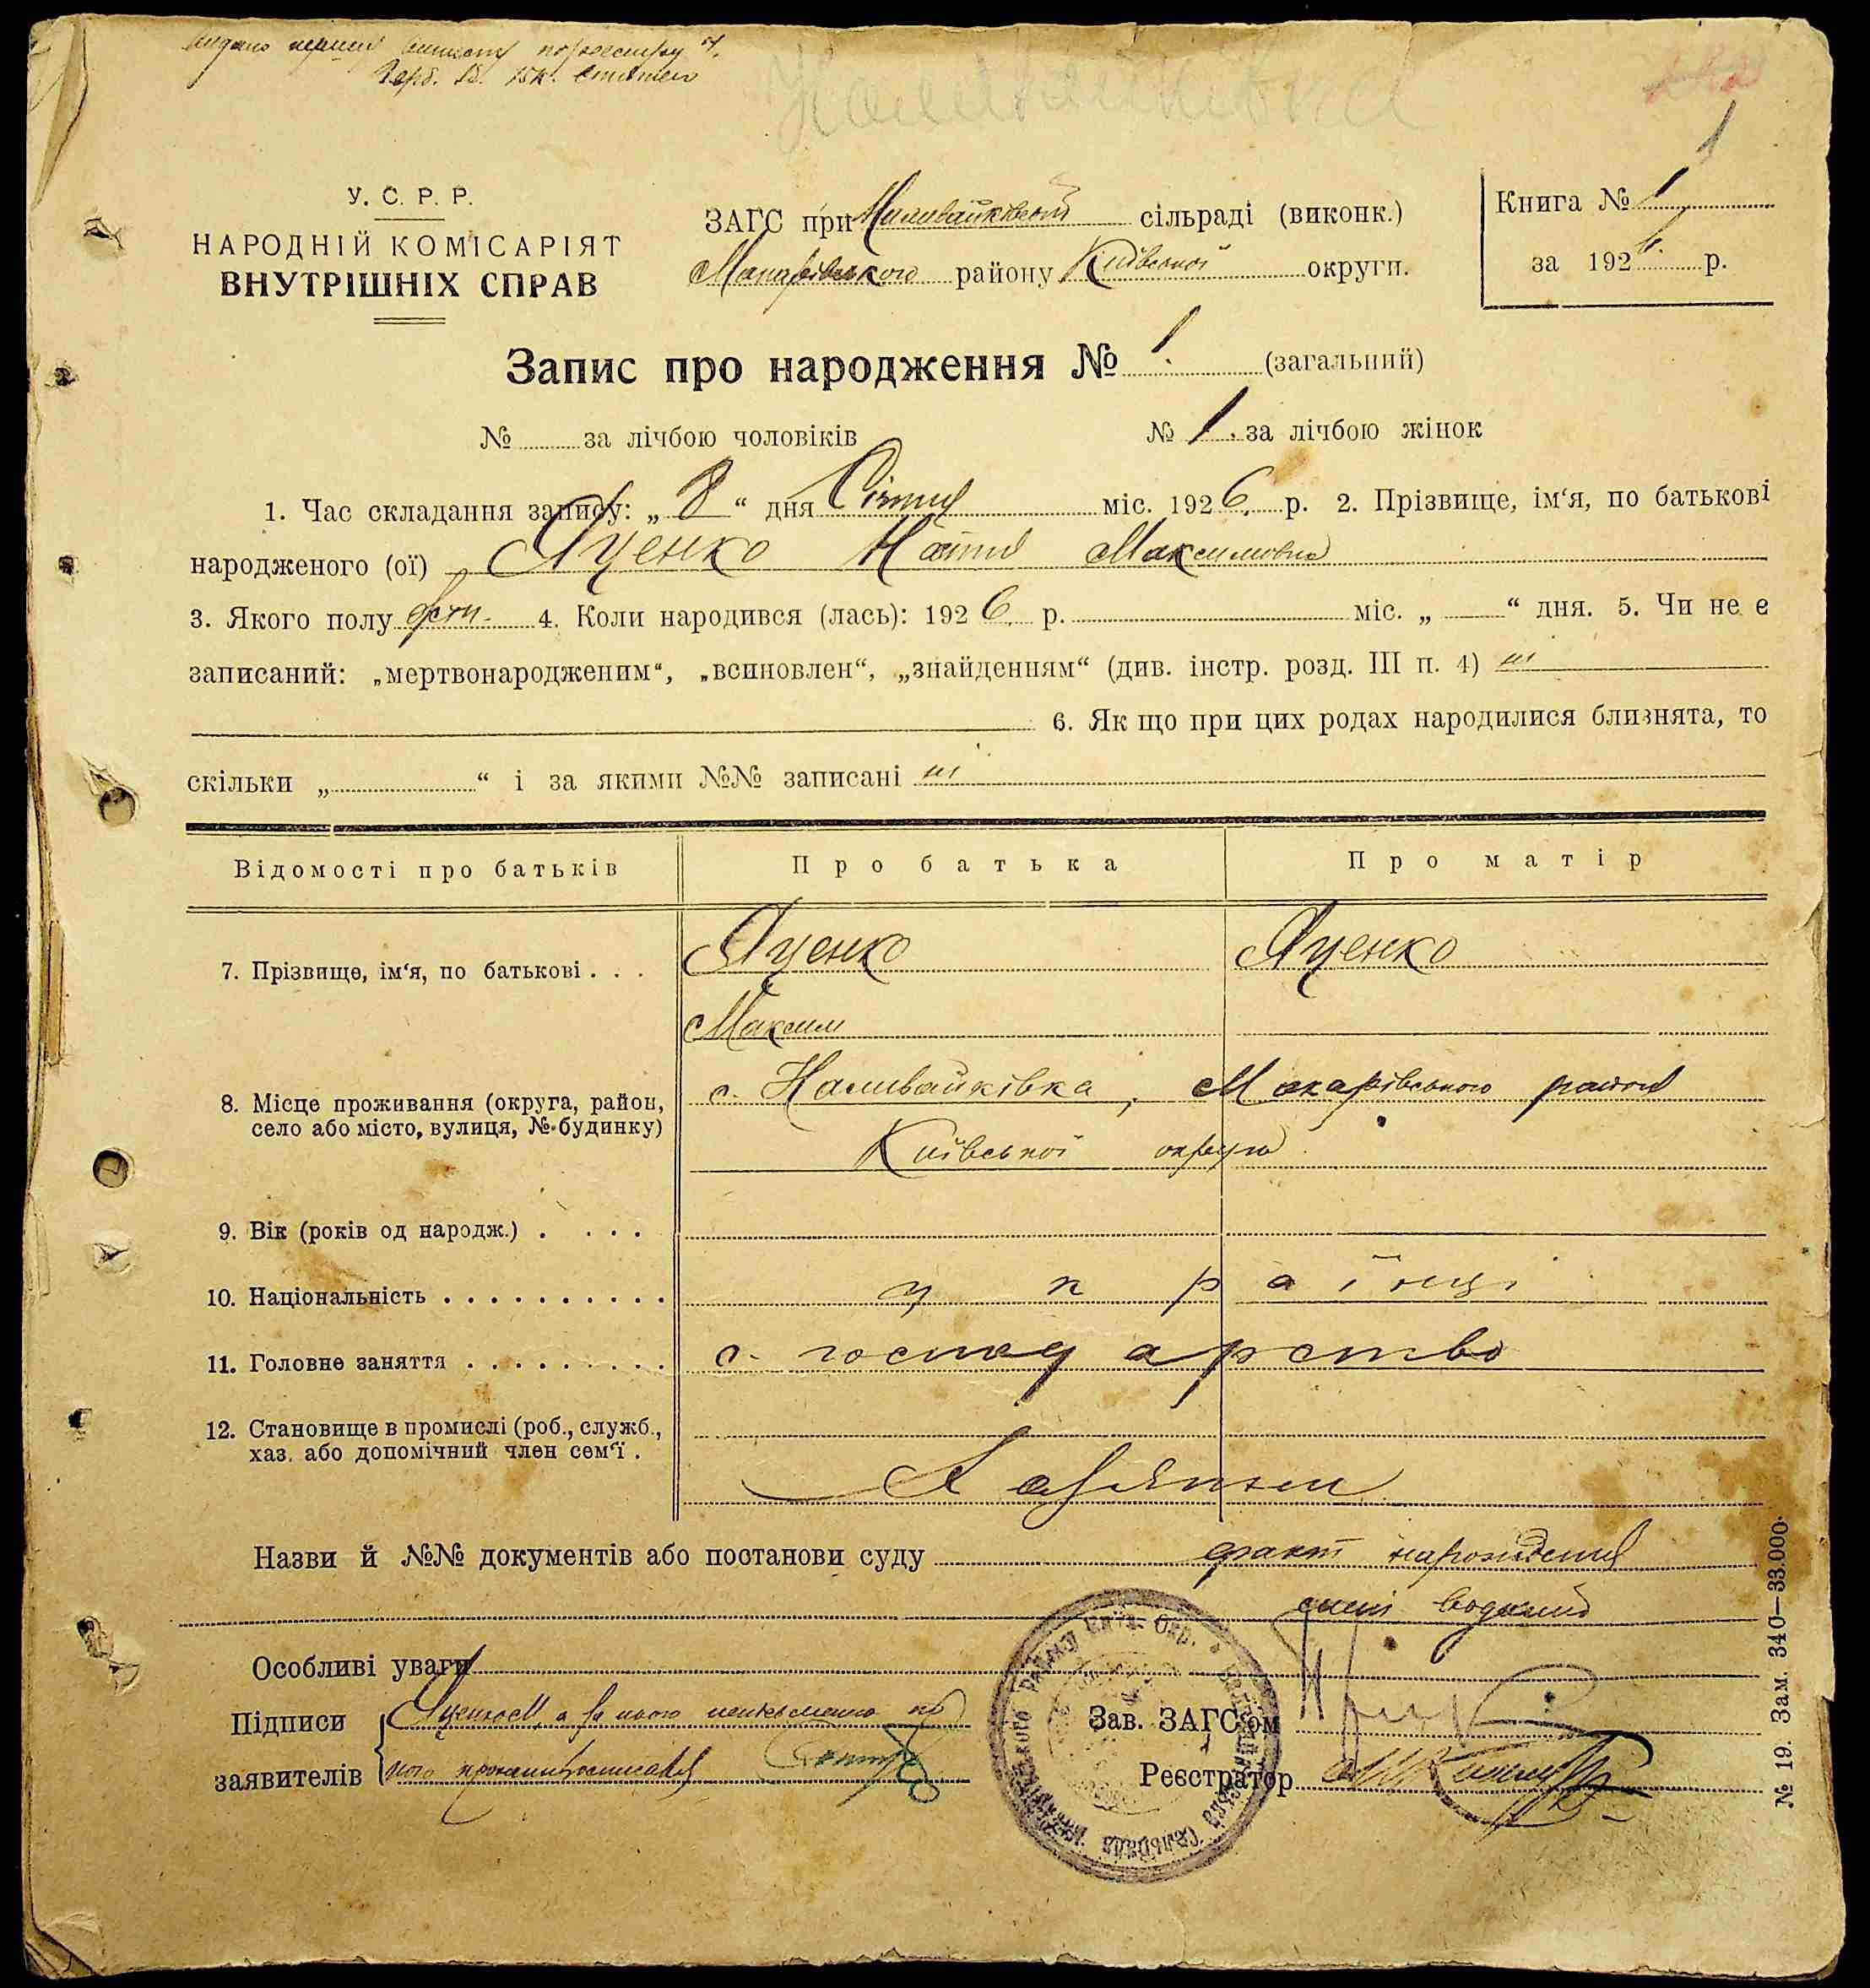 У. С. Р. Р.
НАРОДНІЙ КОМІСАРІЯТ
ВНУТРІШНІХ СПРАВ
ЗАГС при Наливайківській сільраді (виконк.)
Макарівського району Київської округи.
Книга № 1
за 1926 р.
Запис про народження № 1. (загальний)
№ за лічбою чоловіків № 1. за лічбою жінок
1. Час складання запису: „ 8 “ дня Січня міс. 1926. р. 2. Прізвище, ім‘я, по батькові
народженого (ої) Яценко Надія Максимовна
3. Якого полу жін. 4. Коли народився (лась): 1926. р. міс. „ “ дня. 5. Чи не є
записаний: „мертвонародженим“, „всиновлен“, „знайденням“ (див. інстр. розд. III п. 4) ні
6. Як що при цих родах народилися близнята, то
скільки „ “ і за якими №№ записані ні
Відомості про батьків Про батька Про матір
7. Прізвище, ім‘я, по батькові . . . Яценко Яценко
Максим
8. Місце проживання (округа, район, село або місто, вулиця, № будинку) с. Наливайківка, Макарівського району
Київської округи
9. Вік (років од народж.) . . . .
10. Національність . . . . . . . . . . українці
11. Головне заняття . . . . . . . . . с. господарство
12. Становище в промислі (роб., служб.,
хаз. або допомічний член сем‘ї .
Назви й №№ документів або постанови суду факт народження
Особливі уваги
Підписи
заявителів
Зав. ЗАГС‘ом
Реєстратор
№ 19. Зам. 340—33.000.